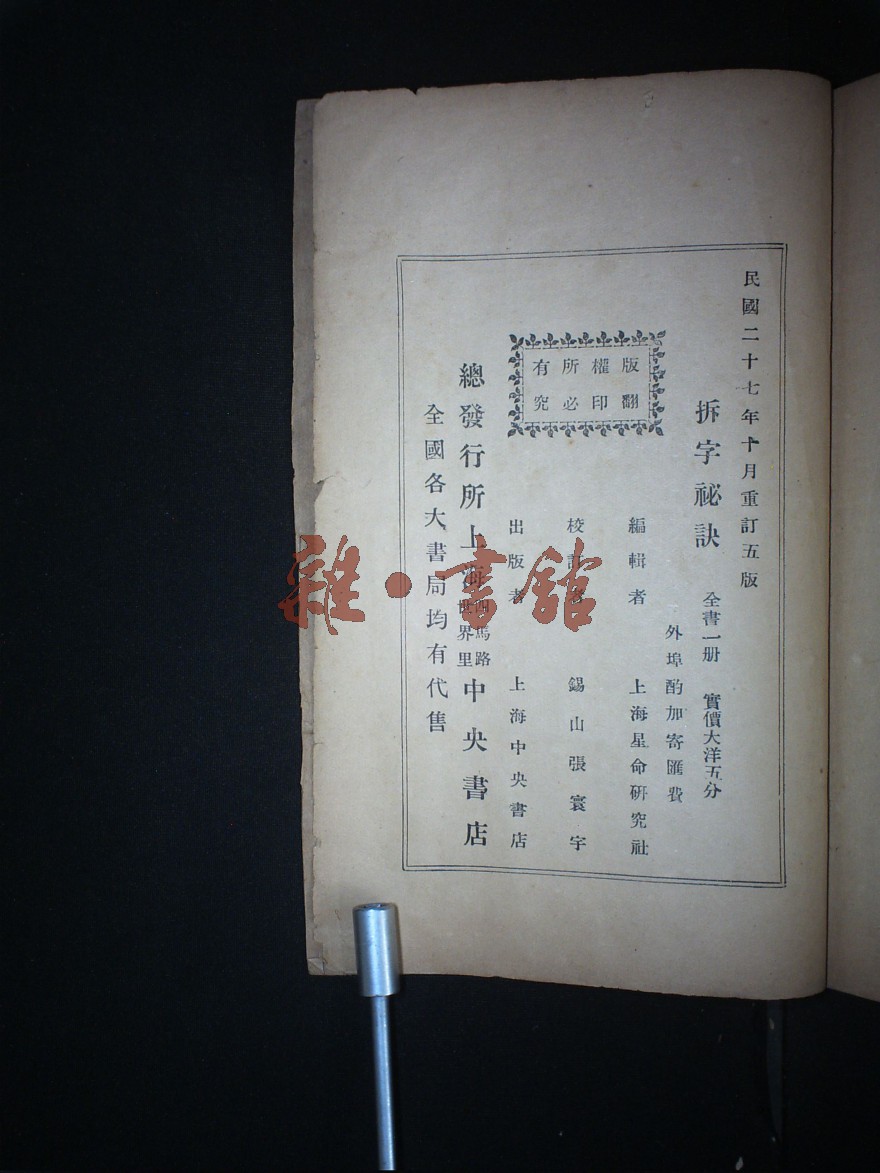 民國二十七年十月重訂五版
拆字祕訣 全書一册 實價大洋五分
外埠酌加寄匯費
編輯者 上海星命研究社
校訂者 錫山張寰宇
出版者 上海中央書店
版權所有
翻印必究
總發行所上海四馬路世界里中央書店
全國各大書局均有代售
雜·書館